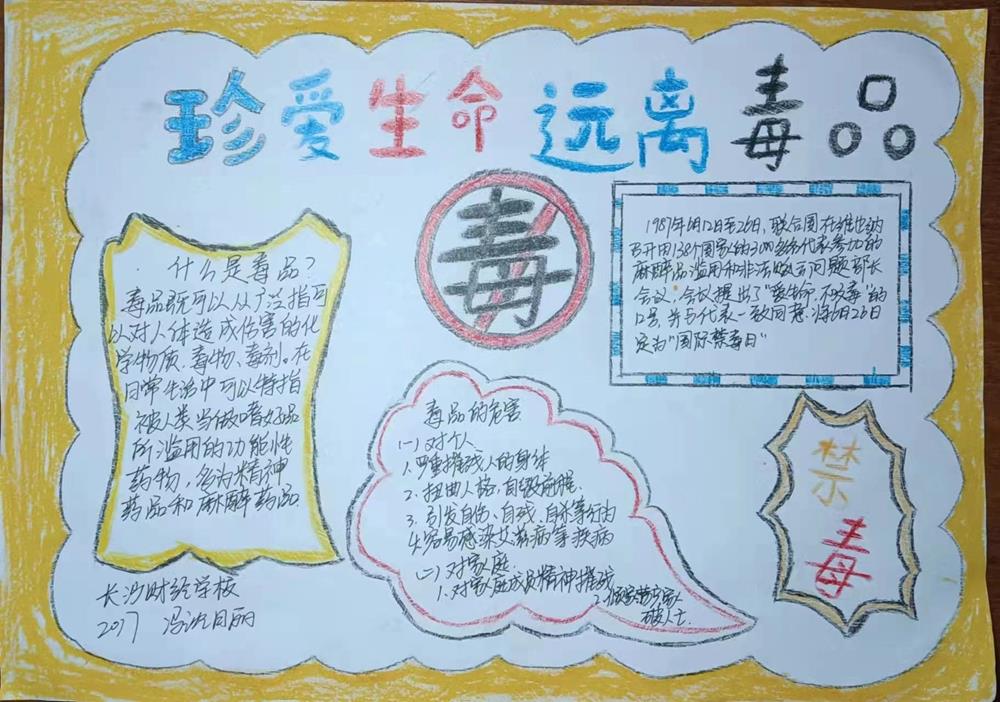 珍爱生命远离毒品
毒
什么是毒品?
毒品既可以从广泛指可
以对人体造成伤害的化
学物质、毒物、毒剂。在
日常生活中可以特指
被人类当做嗜好品
所滥用的功能性
药物,多为精神
药品和麻醉药品
1987年6月12日至26日,联合国在维也纳
召开由138个国家的3000多名代表参加的
麻醉品滥用和非法贩运问题部长
会议,会议提出了"爱生命不吸毒"的
口号,并与代表一致同意,将6月26日
定为"国际禁毒日"
毒品的危害
(一)对个人
1.严重摧残人的身体
2.扭曲人格,自毁前程.
3.引发自伤、自残、自杀等行为
4.容易感染艾滋病等疾病
(二)对家庭
1.对家庭成员精神摧残
2.倾家荡产家
破人亡.
禁
毒
长沙财经学校
2017